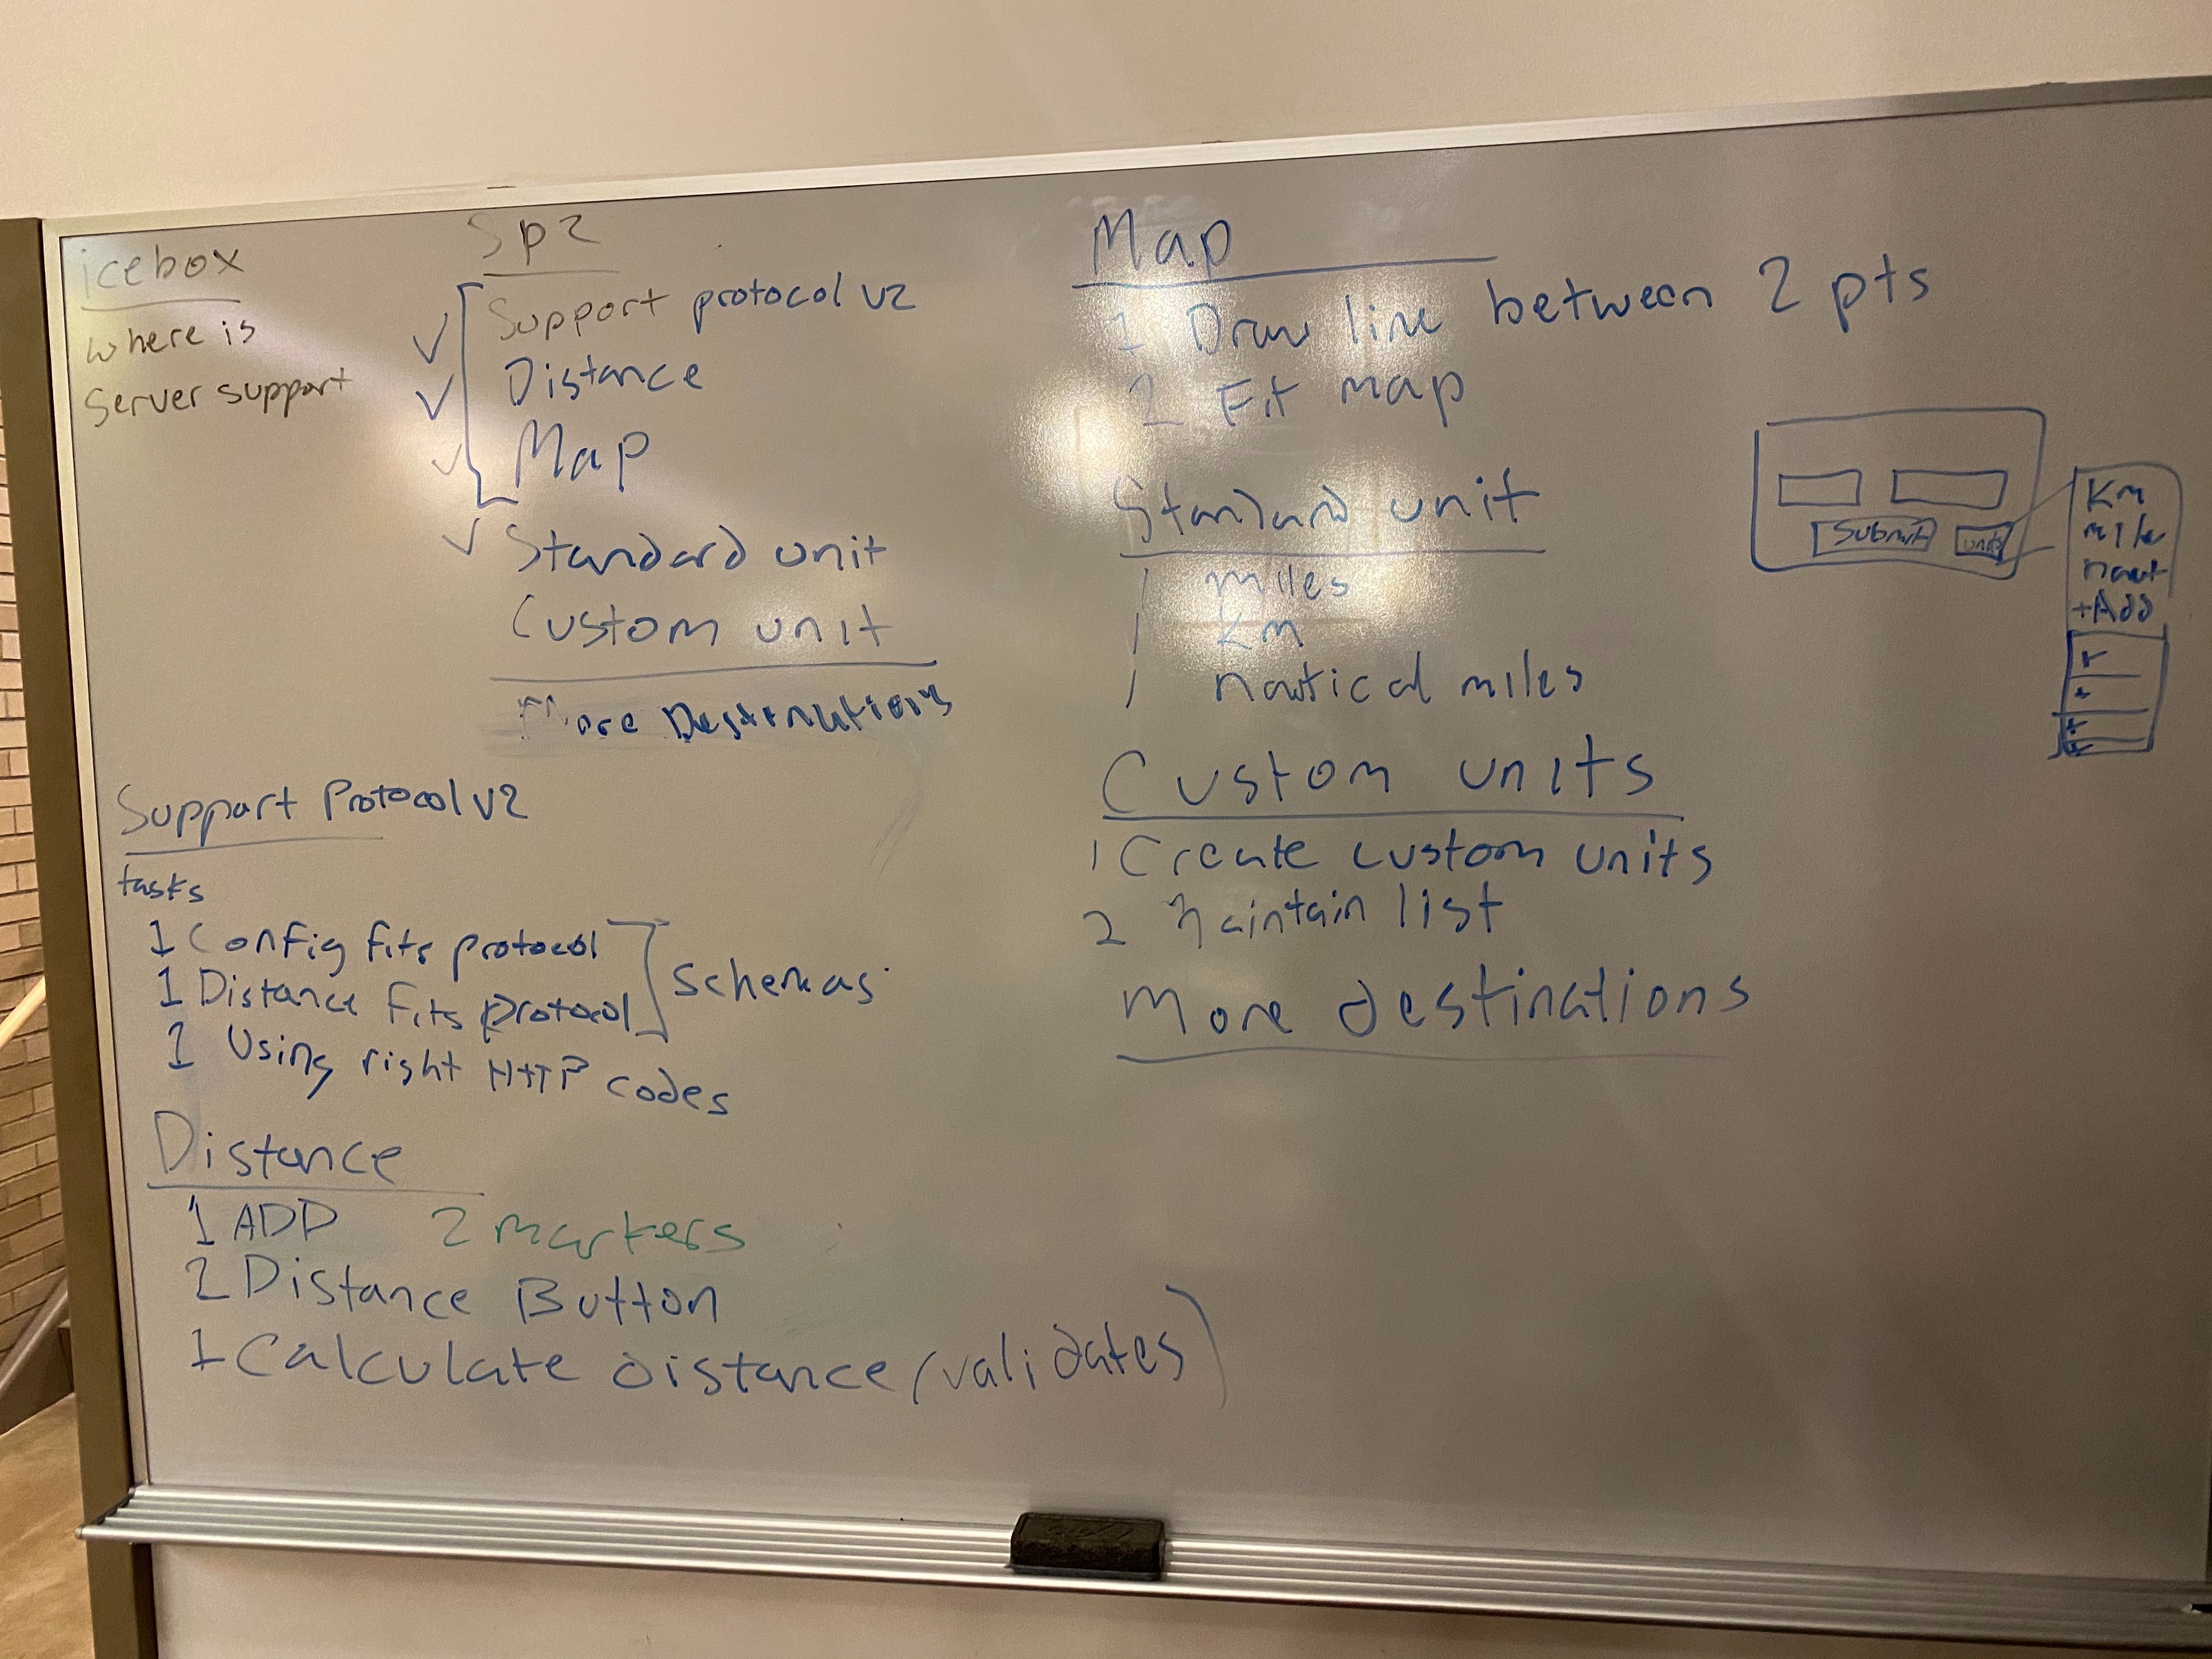 icebox
where is
Server support
Sp2
✓ Support protocol v2
✓ Distance
✓ Map
✓ Standard unit
Custom unit
More Destinations
Support Protocol v2
tasks
1 Config fits protocol
1 Distance fits protocol
Schemas
1 Using right HTTP codes
Distance
1 ADD 2 markers
2 Distance Button
1 Calculate distance (validates)
Map
1 Draw line between 2 pts
2 Fit map
Standard unit
1 miles
1 Km
1 nautical miles
Custom units
1 Create custom units
2 Maintain list
More destinations
Submit units
Km
mile
naut
+Add